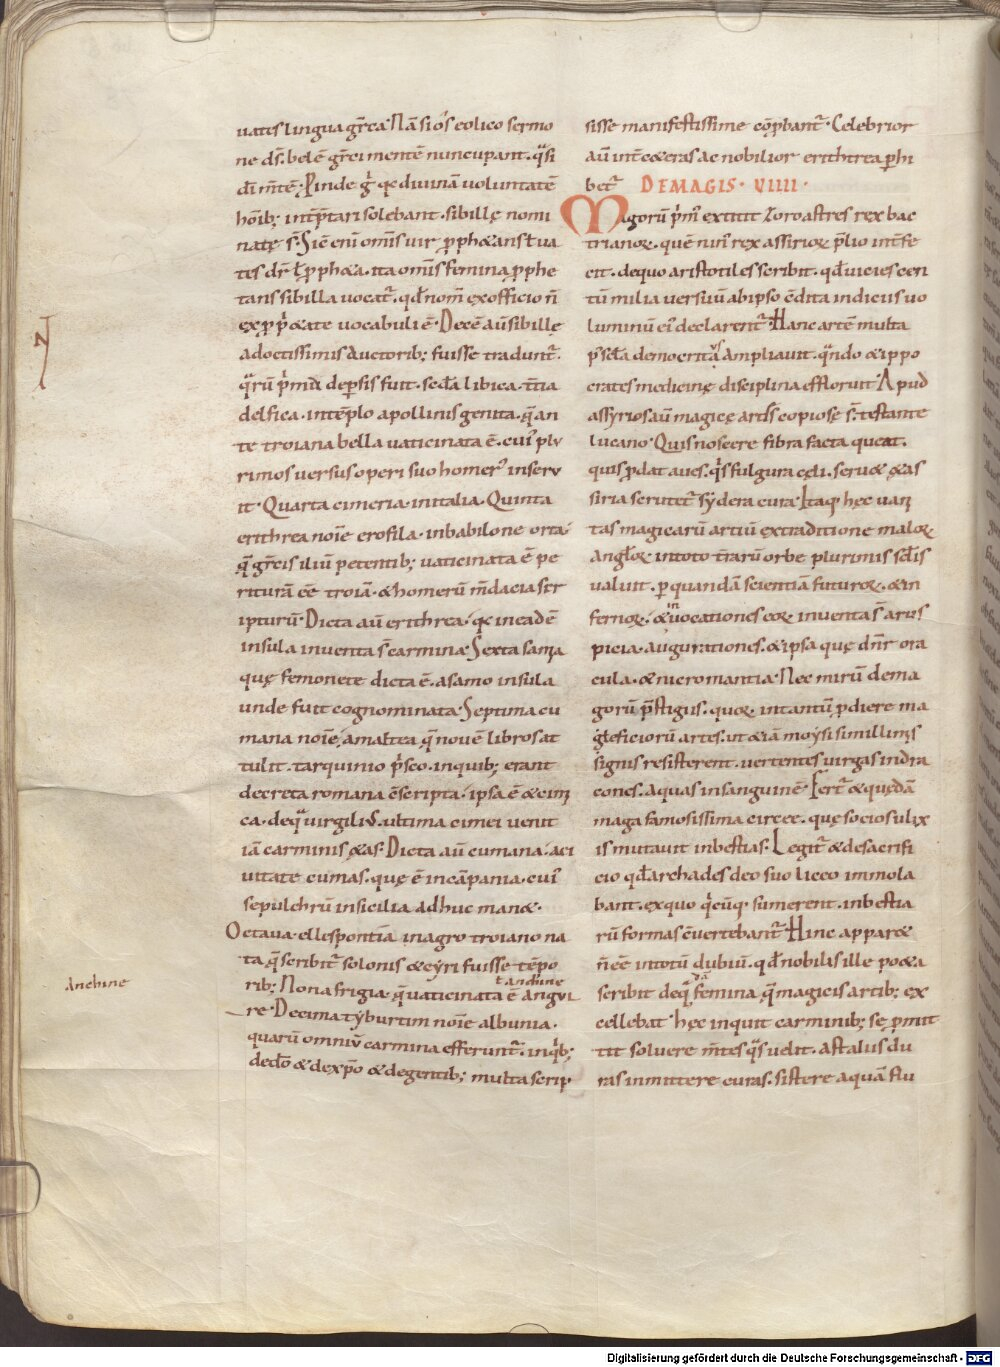 uatis lingua grͣeca. Nā sios eolico sermo
ne dš. belē grͣeci mentē nuncupant. qͣsi
dī m̄tē. Proinde gͥ qͥ diuinā uoluntatē
hōib; int̄p̄tari solebant. sibillę nomi
natę s̄. Sic enī omīs uir ꝓph&ans ł ua
tes dr̄ ł ꝓph&a. ita omīs femina ꝓphe
tans sibilla uocat᷑. qđ nom̄ ex officio ñ
ex ꝓp̄&ate uocabuli ē. Decē aū sibillę
a doctissimis auctorib; fuisse tradunt᷑.
qͣrū p̄ma de persis fuit. secđa libica. t̄tia
delfica. in tēplo apollinis genita. qͣ an
te troiana bella uaticinata ē. cuiꝰ plu
rimos uersus operi suo homerꝰ inseru
it. Quarta cimeria. in italia. Quinta
erithrea noīe erofila. in babilone orta.
qͣ grͣecis iliū petentib; uaticinata ē pe
riturā ēē troiā. & homerū m̄dacia scr
ipturū. Dicta aū erithrea. qͥ in eadē
insula inuenta s̄ carmina. Sexta samia
quę femonete dicta ē. a samo insula
unde fuit cognominata. Septima cu
mana noīe amaltea. qͣ nouē libros at
tulit. tarquinio pͥsco. in quib; erant
decreta romana cs̄cripta. ipsa ē & cim̄
ca. de qͣ uirgiliꝰ. ultima cimei uenit
iā carminis &as. Dicta aū cumana. a ci
uitate cumas. quę ē in cāpania. cuiꝰ
sepulchrū in sicilia adhuc man&.
Octaua. ellespontia in agro troiano na
ta. qͣ scribit᷑ solonis & cyri fuisse tēpo
ł anchine
rib; Nona frigia. qͣ uaticinata ē angui
Anchine
re. Decima tyburtim noīe albunia.
quarū omniū carmina efferunt᷑. in qͥb;
de dō & de xp̄o & de gentib; multa scrip
sisse manifestissime cōprobant᷑. Celebrior
aū int̄ c&eras ac nobilior erithrea phi
bet᷑ DE MAGIS. VIIII.
Magorū pͥmꝰ extitit Zoroastres rex bac
trianoꝝ. quē ninꝰ rex assirioꝝ p̄lio int̄fe
cit. de quo aristotiles scribit. qđ uicies cen
tū milia uersuū ab ipso cōdita indiciis uo
luminū eiꝰ declarent᷑. Hanc artē multa
p̄ sc̄la democritus ampliauit. qͣndo & ippo
crates medicinę disciplina effloruit. Apud
assyrios aū magicę artes copiosę s̄. testante
lucano. Quis noscere fibra facta queat.
quis ꝓdat aues. qͥs fulgura cęli. seru& & as
siria scrutet᷑ sydera cura. Itaq; hęc uani
tas magicarū artiū ex traditione maloꝝ
angłoꝝ in toto t̄rarū orbe plurimis sc̄lis
ualuit. ꝑ quandā scientiā futuroꝝ. & in
fernoꝝ. & inuocationes eoꝝ inuenta s̄ arus
picia. augurationes. & ipsa quę dn̄r ora
cula. & nicromantia. Nec mirū de ma
gorū p̄stigiis. quoꝝ in tantū ꝓdiere ma
leficiorū artes. ut &iā moysi simillimis
signis resisterent. uertentes uirgas in dra
cones. aquas in sanguinē. Fert᷑ & quędā
maga famosissima circee. quę socios ulix
is mutauit in bestias. Legit᷑ & de sacrifi
cio qđ archades deo suo liceo immola
bant. ex quo qͥcūq; sumerent. in bestia
rū formas cōuertebant᷑. Hinc appar&
ñ ēē in totū dubiū. qđ nobilis ille po&a
scribit de qͣdā femina. qͣ magicis artib; ex
cellebat. hęc inquit carminib; se ꝓmit
tit soluere m̄tes qͣs uelit. ast alus du
ras inmittere curas. sistere aquā flu
Digitalisierung gefördert durch die Deutsche Forschungsgemeinschaft - DFG